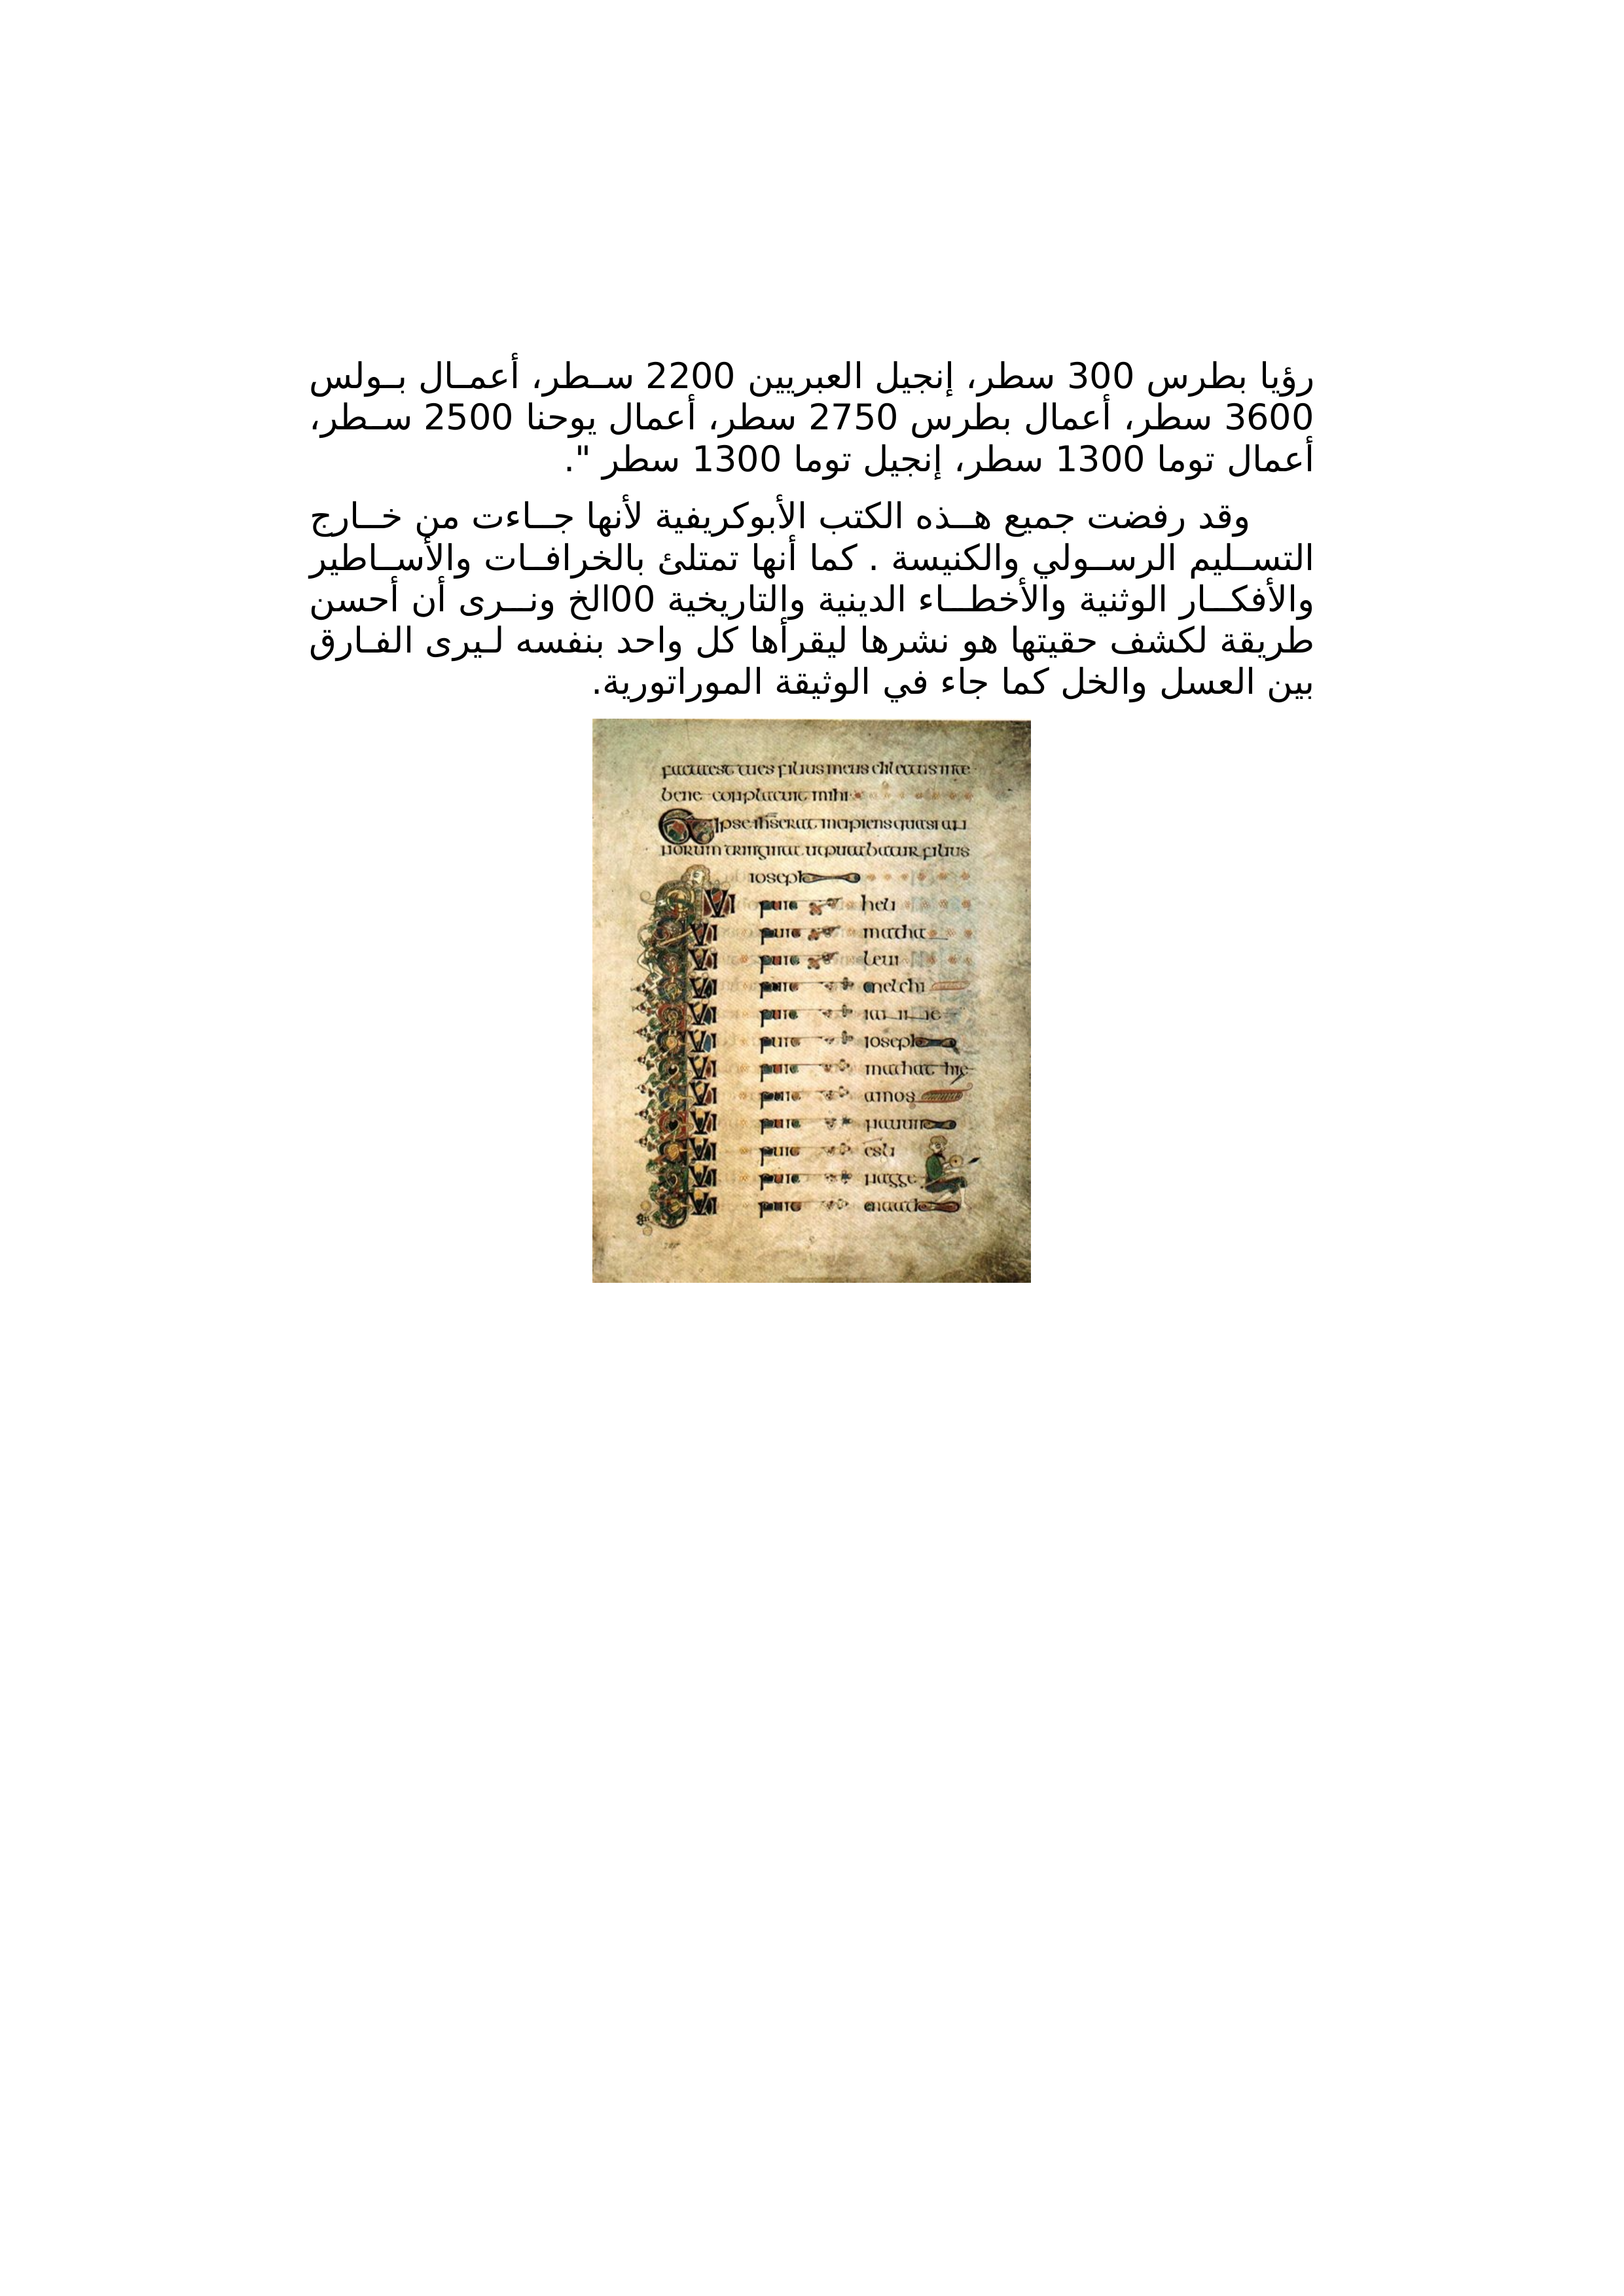 رؤيا بطرس 300 سطر، إنجيل العبريين 2200 سـطر، أعمـال بـولس
3600 سطر، أعمال بطرس 2750 سطر، أعمال يوحنا 2500 سـطر،
أعمال توما 1300 سطر، إنجيل توما 1300 سطر ".
وقد رفضت جميع هــذه الكتب الأبوكريفية لأنها جــاءت من خــارج
التســليم الرســولي والكنيسة . كما أنها تمتلئ بالخرافــات والأســاطير
والأفكــار الوثنية والأخطــاء الدينية والتاريخية 00الخ ونــرى أن أحسن
طريقة لكشف حقيتها هو نشرها ليقرأها كل واحد بنفسه لـيرى الفـارق
بين العسل والخل كما جاء في الوثيقة الموراتورية.
bene complacuit mihi
ioseph
heli
matha
levi
melchi
ioseph
amos
esli
nagge